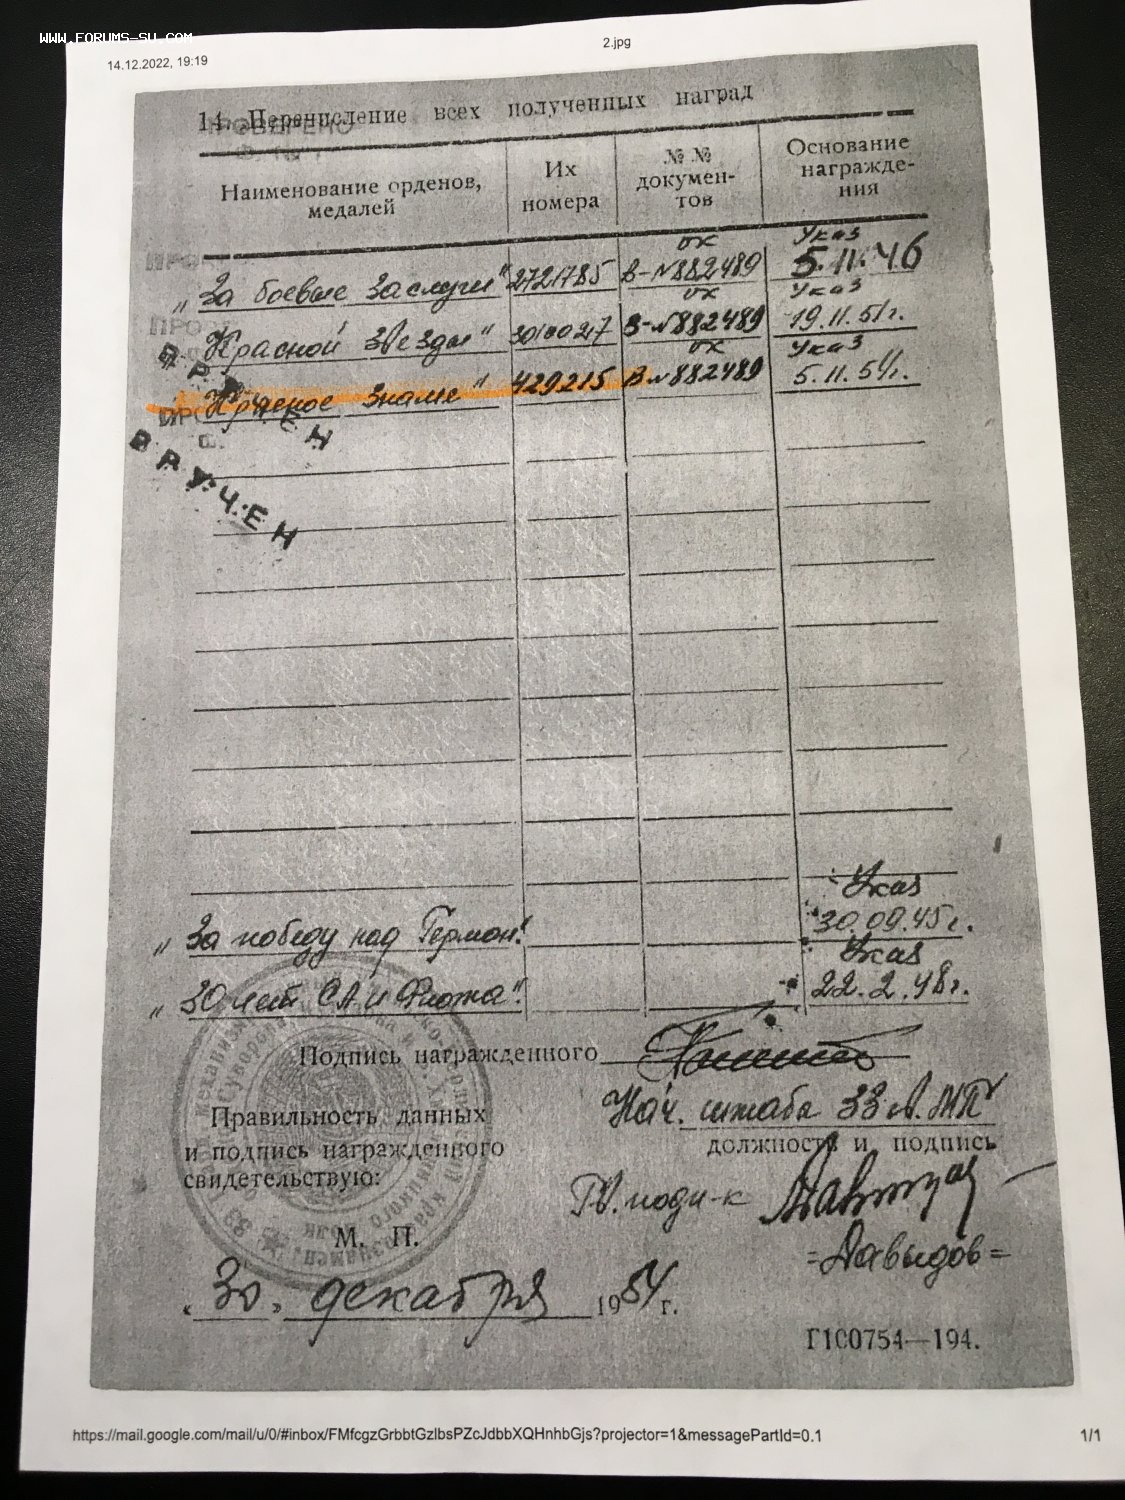 WWW.FORUMS-SU.COM
14.12.2022, 19:19
2.jpg
14. Перечисление всех полученных наград
ПРОВЕРЕНО
Наименование орденов, медалей
Их номера
№ № докумен-тов
Основание награжде-ния
„За боевые заслуги" 2721785 ох В-№882489 Указ 5.11.46
„Красной Звезды" ох В-№882489 Указ 19.11.51г.
Красное Знаме" 429215 ох В№882489 Указ 5.11.54г.
ВРУЧЕН
ВРУЧЕН
„За победу над Герман." Указ 30.09.45г.
„30 лет СА и Флота". Указ 22.2.48г.
Подпись награжденного
Правильность данных
и подпись награжденного
свидетельствую:
Нач. штаба 33 гв. МП
должность и подпись
Гв. подп-к
=Давыдов=
М. П.
«30» декабря 1954 г.
Г1С0754—194.
https://mail.google.com/mail/u/0/#inbox/FMfcgzGrbbtGzlbsPZcJdbbXQHnhbGjs?projector=1&messagePartId=0.1
1/1